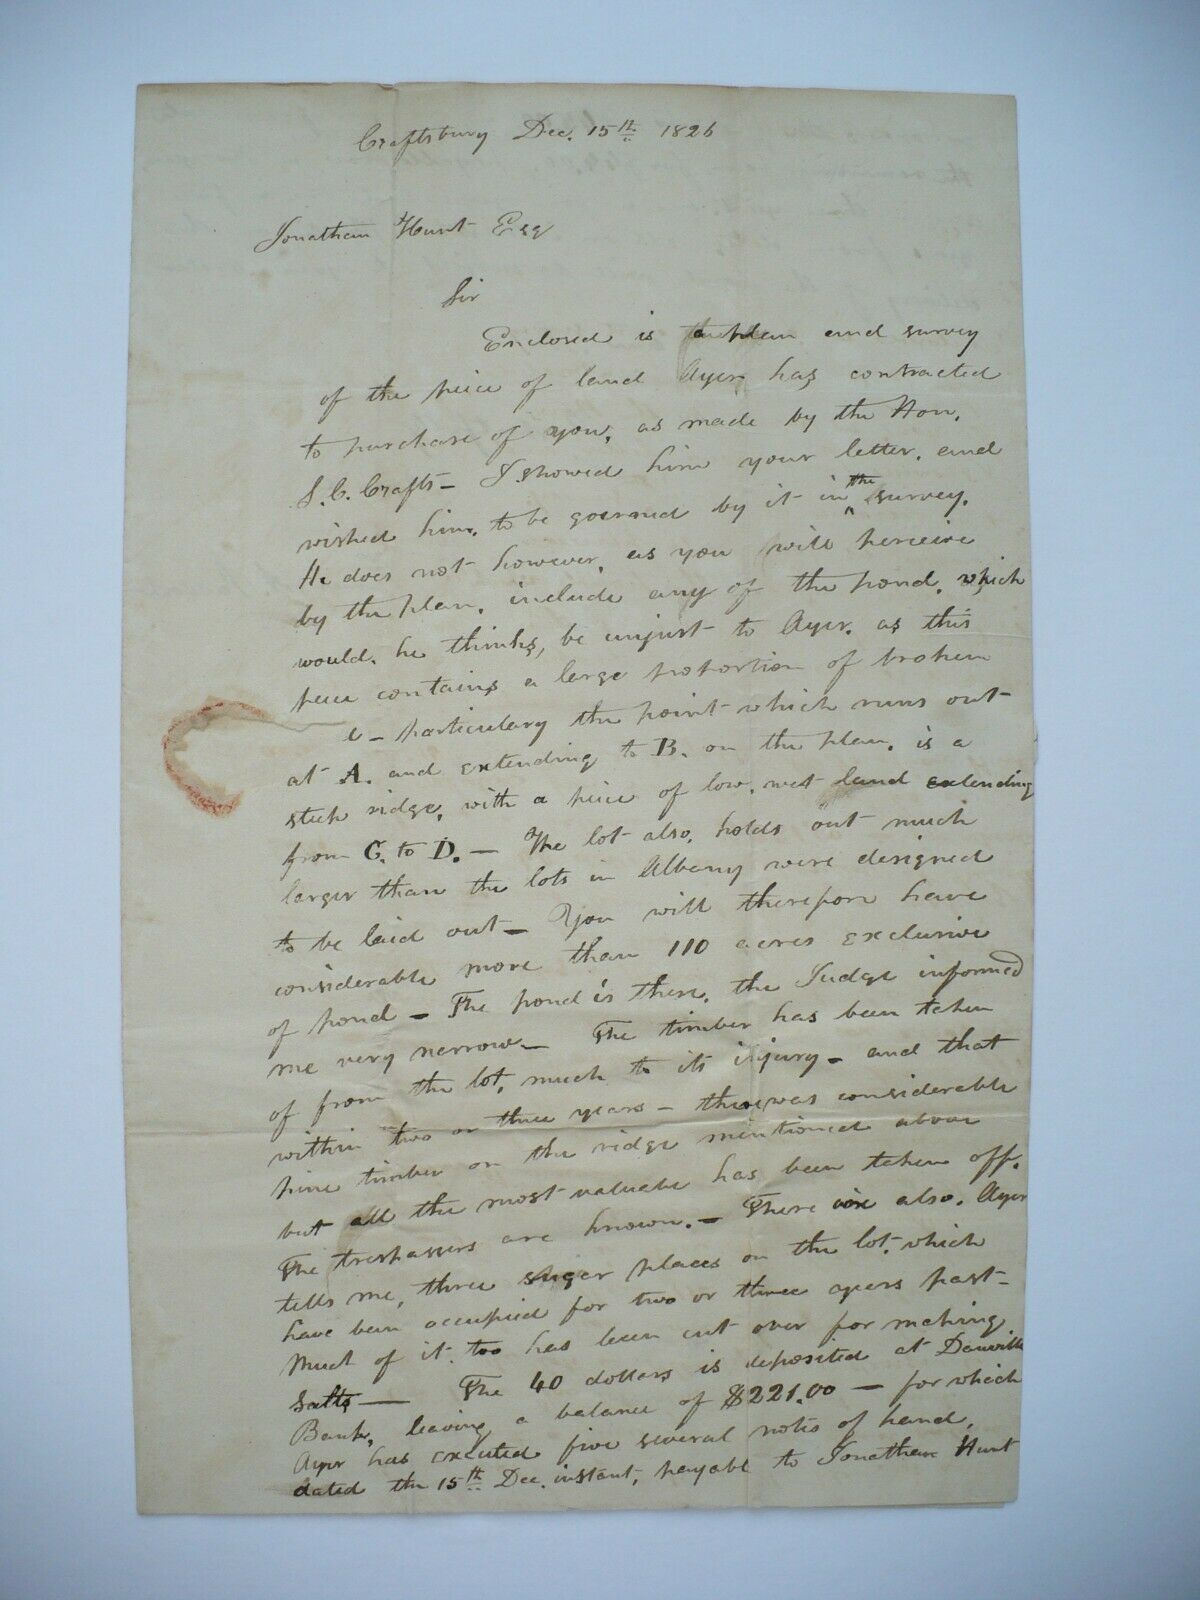 Craftsbury Dec. 15th 1826
Jonathan Hunt Esq
Sir
Enclosed is a plan and survey
of the peice of land Ayer has contracted
to purchase of you, as made by the Hon.
S. C. Crafts - I showed him your letter, and
wished him, to be governed by it in the survey.
He does not however, as you will perceive
by the plan, include any of the pond, which
would, he thinks, be unjust to Ayer, as this
peice contains a large proportion of broken
particulary the point which runs out
at A. and extending to B. on the plan, is a
steep ridge, with a peice of low, wet land extending
from C. to D. - The lot also, holds out much
larger than the lots in Albany were designed
to be laid out - You will therefore have
considerable more than 110 acres exclusive
of pond - The pond is there, the Judge informed
me very narrow - The timber has been taken
of from the lot, much to its injury - and that
within two or three years - there was considerable
pine timber on the ridge mentioned above
but all the most valuable has been taken off.
The trespassers are known. - There are also, Ayer
tells me, three sugar places on the lot, which
have been occupied for two or three years past -
Much of it too has been cut over for making
Salts - The 40 dollars is deposited at Danville
Bank, leaving a balance of $221.00 - for which
Ayer has executed five several notes of hand,
dated the 15th Dec. instant, payable to Jonathan Hunt